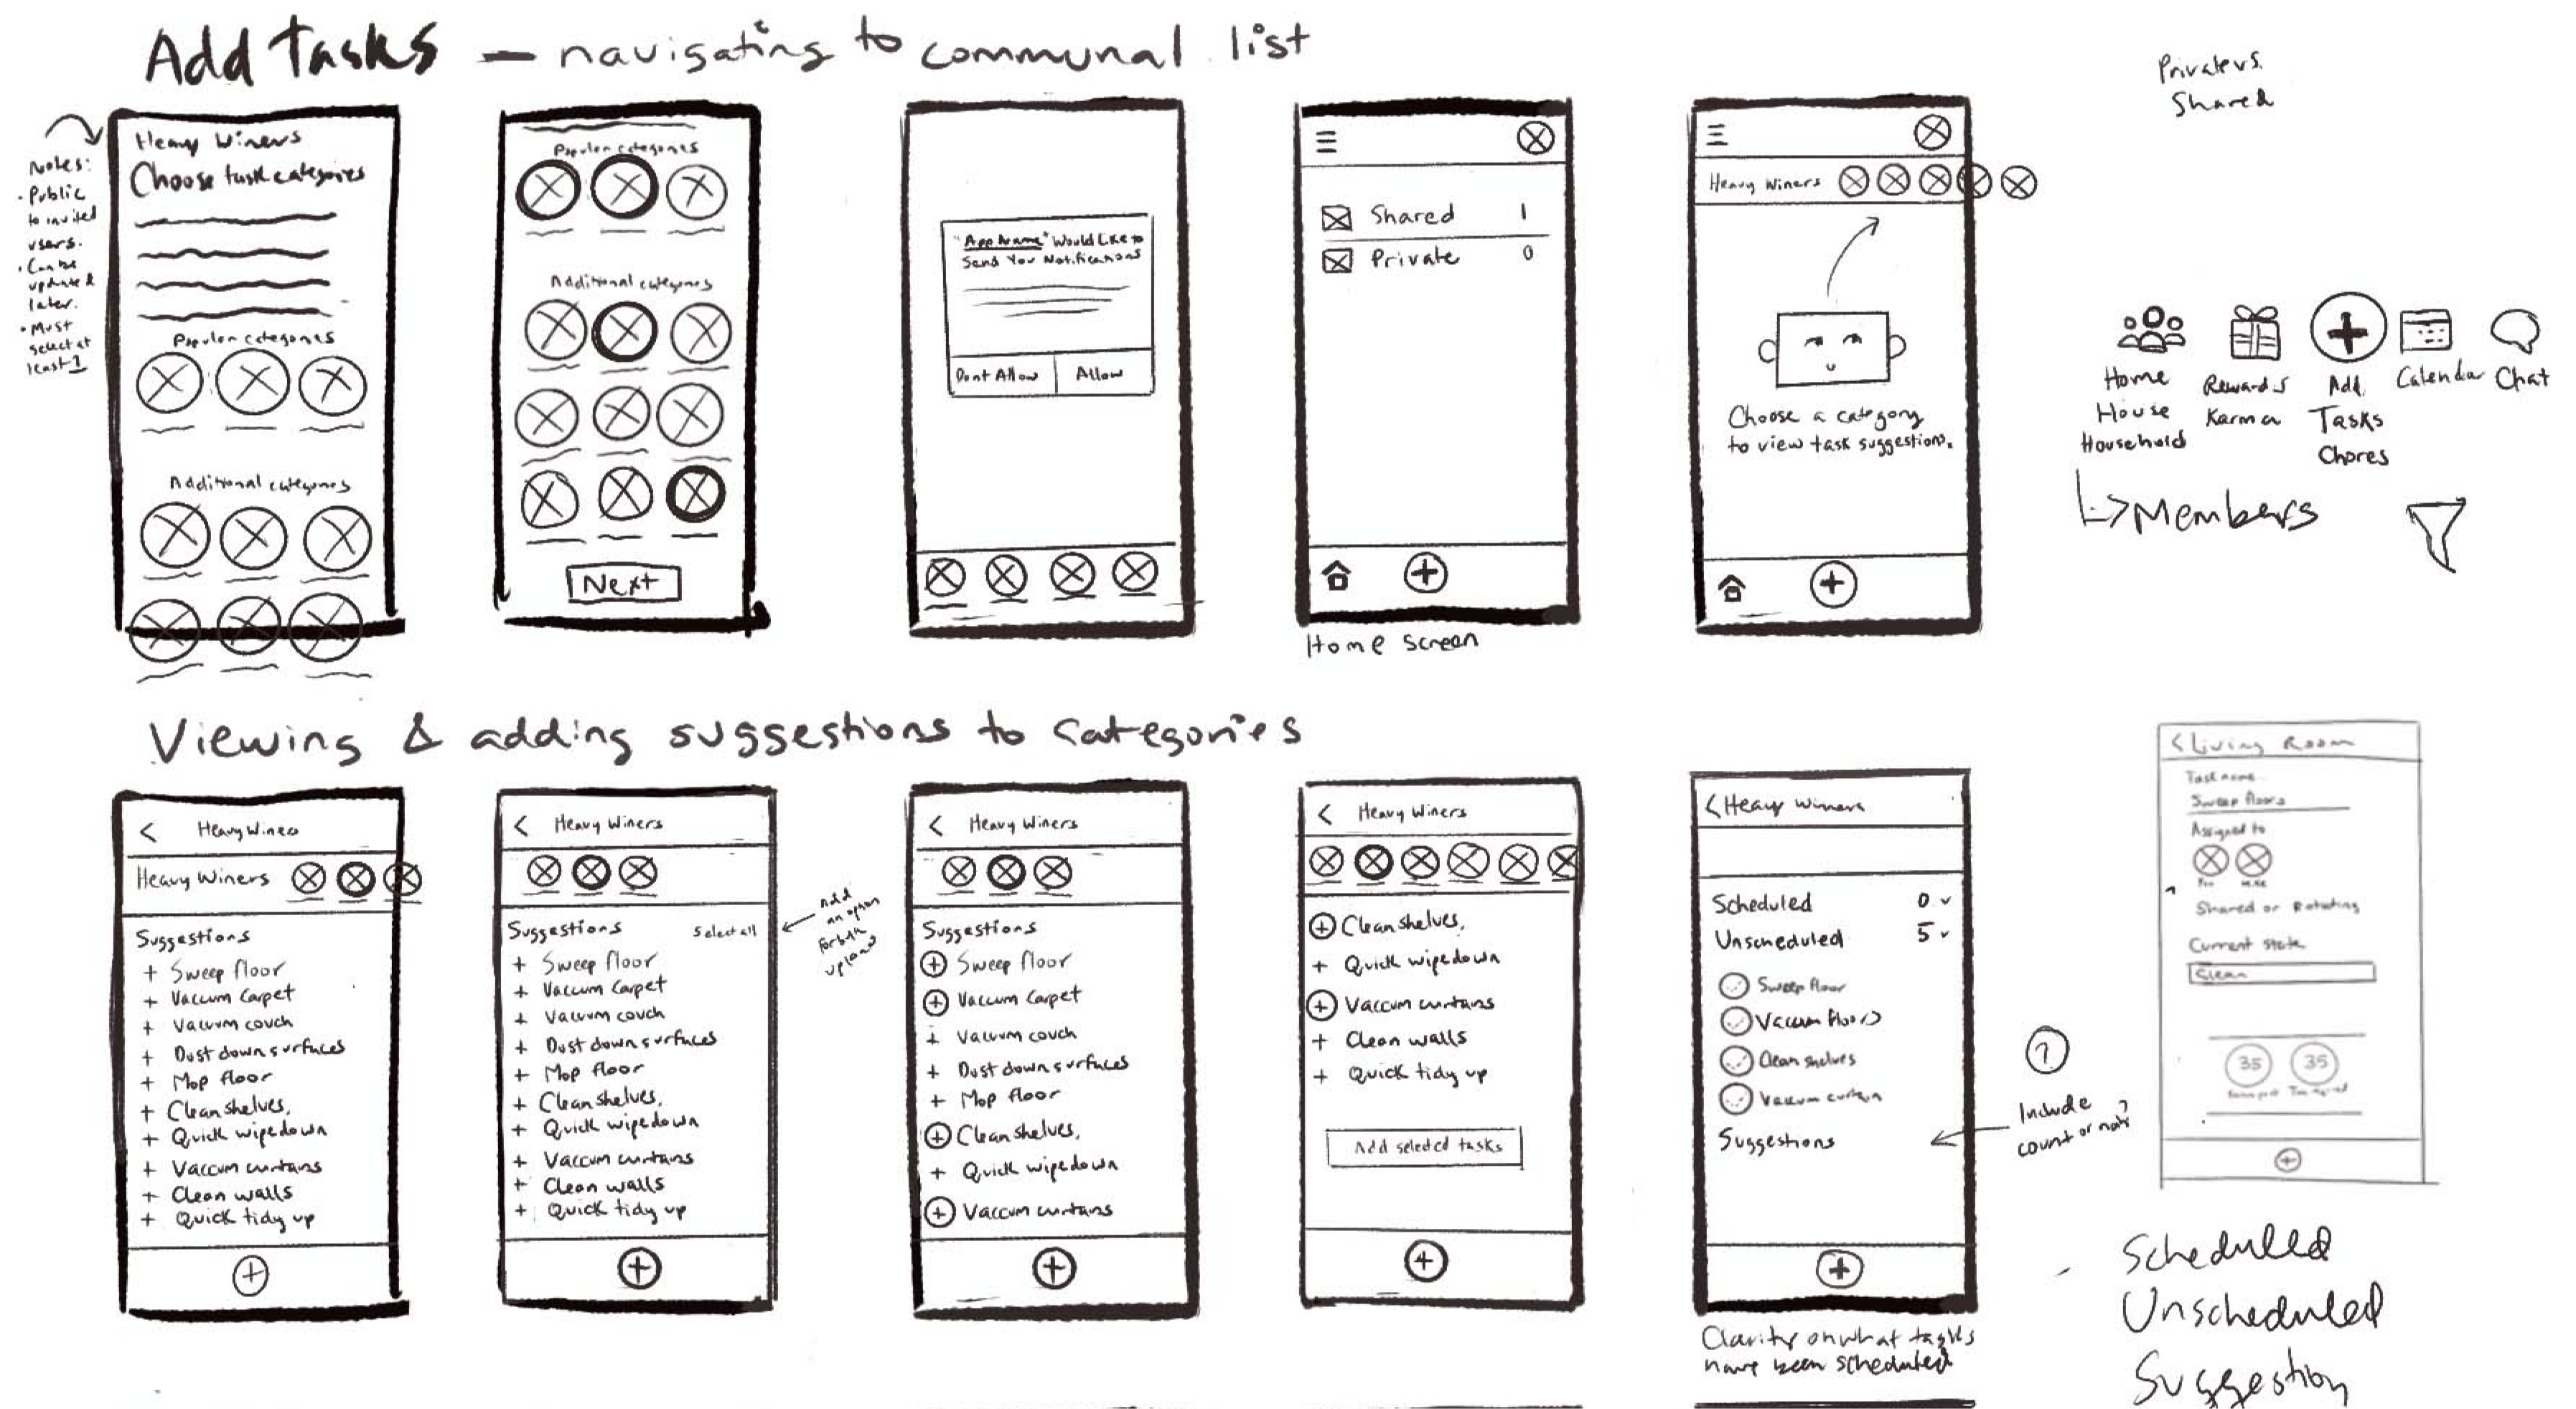 Add Tasks — navigating to communal list
Notes:
• Public
to invited
users.
• Can be
updated
later.
• Must
select at
least 1
Heavy Winers
Choose task categories
Popular categories
Additional categories
Popular categories
Additional categories
Next
"App Name" Would Like to
Send You Notifications
Dont Allow
Allow
Shared 1
Private 0
Home screen
Heavy Winers
Choose a category
to view task suggestions.
Private vs.
Shared
Home
House
Household
Rewards
Karma
Add
Tasks
Chores
Calendar
Chat
Members
Viewing & adding suggestions to categories
< Heavy Winers
Heavy Winers
Suggestions
+ Sweep floor
+ Vaccum Carpet
+ Vacuum couch
+ Dust down surfaces
+ Mop floor
+ Clean shelves,
+ Quick wipedown
+ Vaccum curtains
+ Clean walls
+ Quick tidy up
< Heavy Winers
Suggestions Select all
+ Sweep floor
+ Vaccum Carpet
+ Vacuum couch
+ Dust down surfaces
+ Mop floor
+ Clean shelves,
+ Quick wipedown
+ Vaccum curtains
+ Clean walls
+ Quick tidy up
Add
an option
for bulk
upload
< Heavy Winers
Suggestions
+ Sweep floor
+ Vaccum Carpet
+ Vacuum couch
+ Dust down surfaces
+ Mop floor
+ Clean shelves,
+ Quick wipedown
+ Vaccum curtains
< Heavy Winers
+ Clean shelves,
+ Quick wipedown
+ Vaccum curtains
+ Clean walls
+ Quick tidy up
Add selected tasks
< Heavy Winers
Scheduled 0
Unscheduled 5
Sweep floor
Vaccum floors
Clean shelves
Vacuum curtain
Suggestions
Clarity on what tasks
have been scheduled
?
Include
count or not?
< Living Room
Task name
Sweep floors
Assigned to
You
Shared or Rotating
Current state
Clean
35 35
Scheduled
Unscheduled
Suggestion